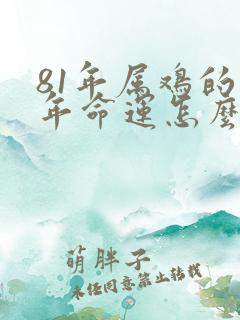 81年属鸡的
年命运怎麽
萌胖子
未经同意禁止转载